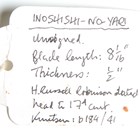 INOSHISHI-NO-YARI
unsigned.
Blade length: 8 1/16"
Thickness: 1/2"
H. Russell Robinson dated
head to 17th cent.
Knutsen: p184/41